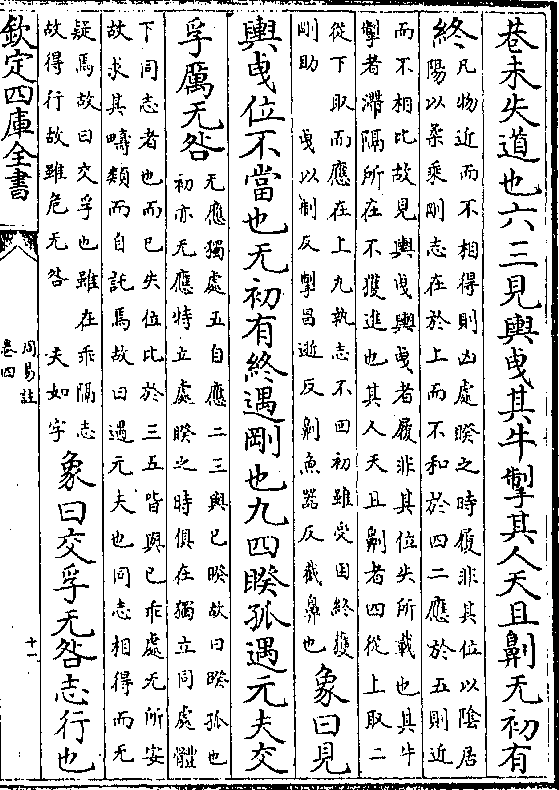 巷未失道也六三見輿曳其牛掣其人天且劓无初有
終凡物近而不相得則凶處睽之時履非其位以陰居
陽以柔乘剛志在於上而不和於四二應於五則近
而不相比故見輿曳輿曳者履非其位失所載也其牛
掣者滯隔所在不獲進也其人天且劓者四從上取二
從下取而應在上九執志不回初雖受困終獲
剛助 曳以制反掣昌逝反劓魚器反截鼻也
象曰見
輿曳位不當也无初有終遇剛也九四睽孤遇元夫交
孚厲无咎无應獨處五自應二三與已睽故曰睽孤也
初亦无應特立處睽之時俱在獨立同處體
下同志者也而已失位比於三五皆與已乖處无所安
故求其疇類而自託焉故曰遇元夫也同志相得而无
疑焉故曰交孚也雖在乖隔志
故得行故雖危无咎 夫如字
象曰交孚无咎志行也
欽定四庫全書
周易註
卷四
十一